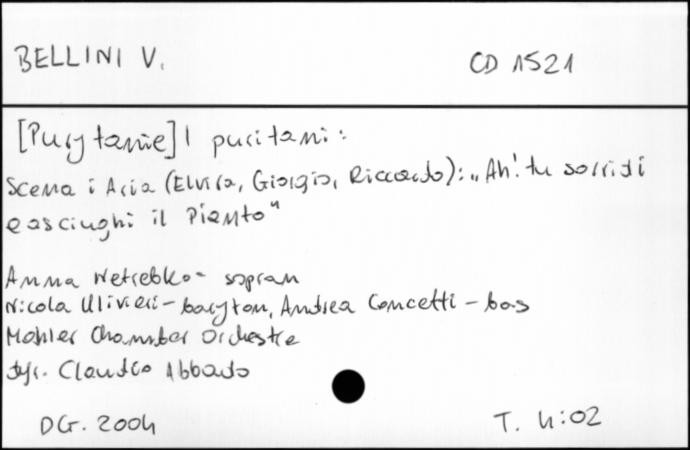 BELLINI V.
CD 1521
[Purytanie] I puritani:
Scena i Aria (Elvira, Giorgio, Riccardo): „Ah! tu sorridi
e asciughi il Pianto"
Anna Netrebko - sopran
Nicola Ulivieri - baryton, Andrea Concetti - bas
Mahler Chamber Orchestre
dyr. Claudio Abbado
DG. 2004
T. 4:02